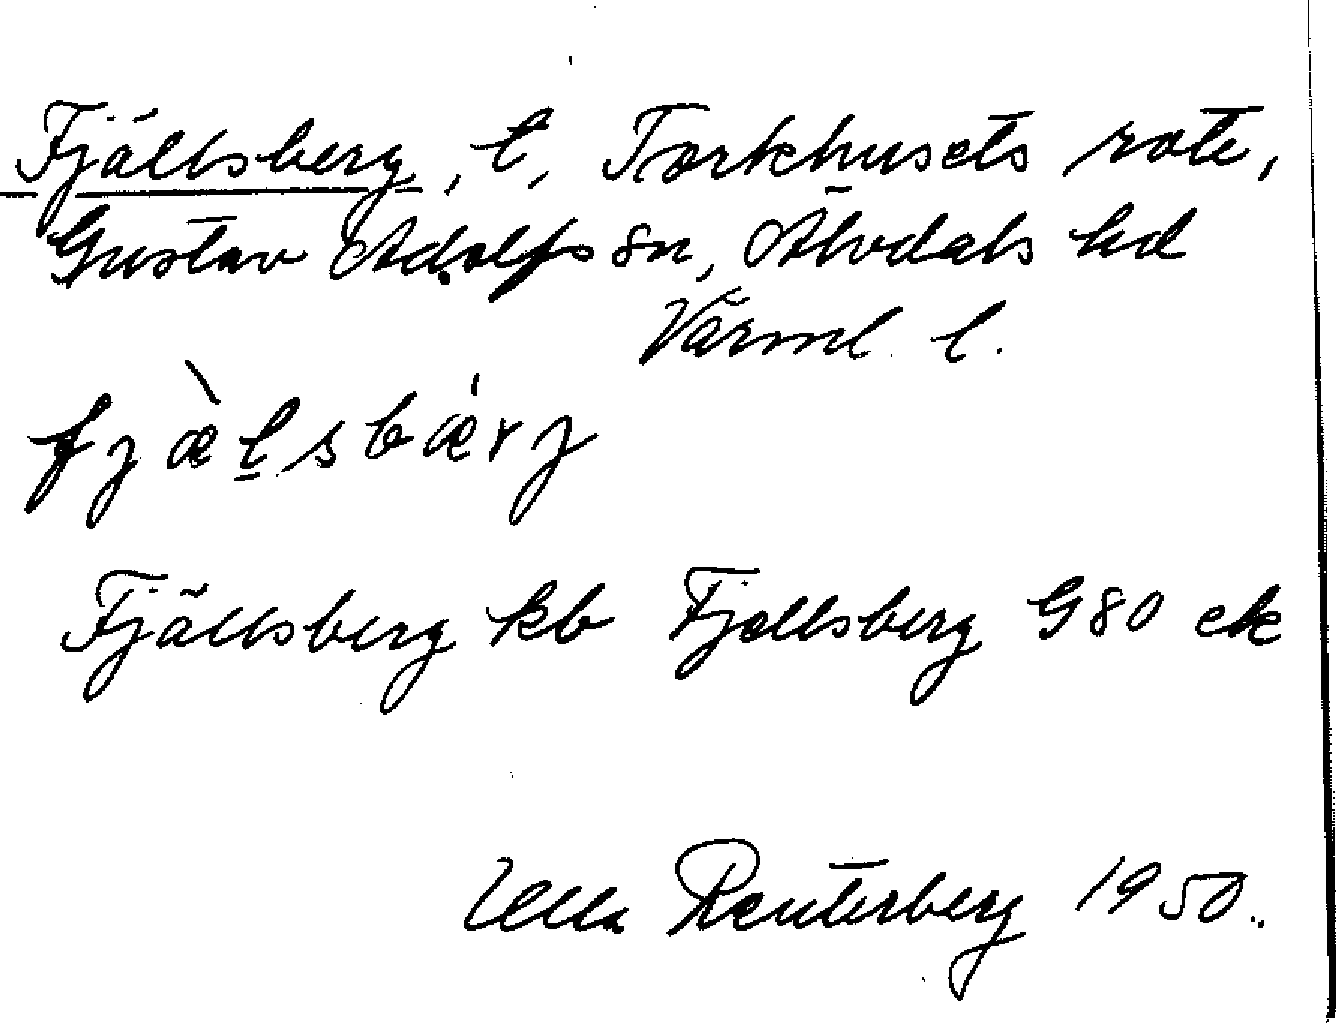 Fjällsberg, t, Torkhusets rote,
Gustav Adolfs sn, Älvdals hd
Värml. l.
fjæ̀l̠sbæ̀rj
Fjällsberg kb Fjellsberg G80 ek
Ulla Reuterberg 1950.